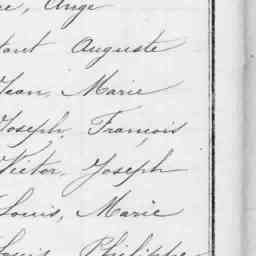 Ange
Auguste
Jean, Marie
Joseph, François
Victor, Joseph
Louis, Marie
Louis, Philippe